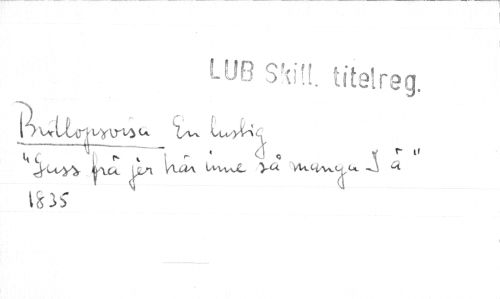 LUB Skill. titelreg.
Bröllopsvisa En lustig
"Guss frå jer här inne så många I ä"
1835